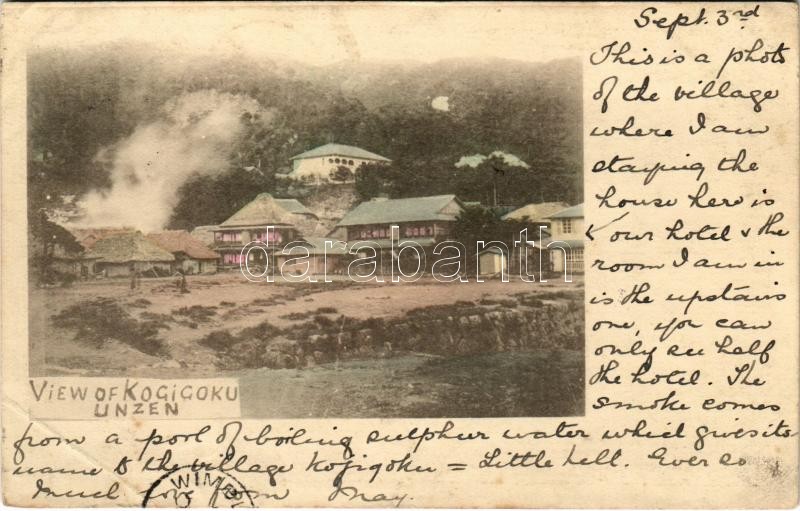 Sept. 3rd
This is a photo
of the village
where I am
staying the
house here is
our hotel & the
room I am in
is the upstairs
one, you can
only see half
the hotel. The
smoke comes
from a pool of boiling sulphur water which gives its
name to the village Kojigoku = Little hell. Ever so
much love from May.
VIEW OF KOGIGOKU
UNZEN
darabanth.com
WIMBL